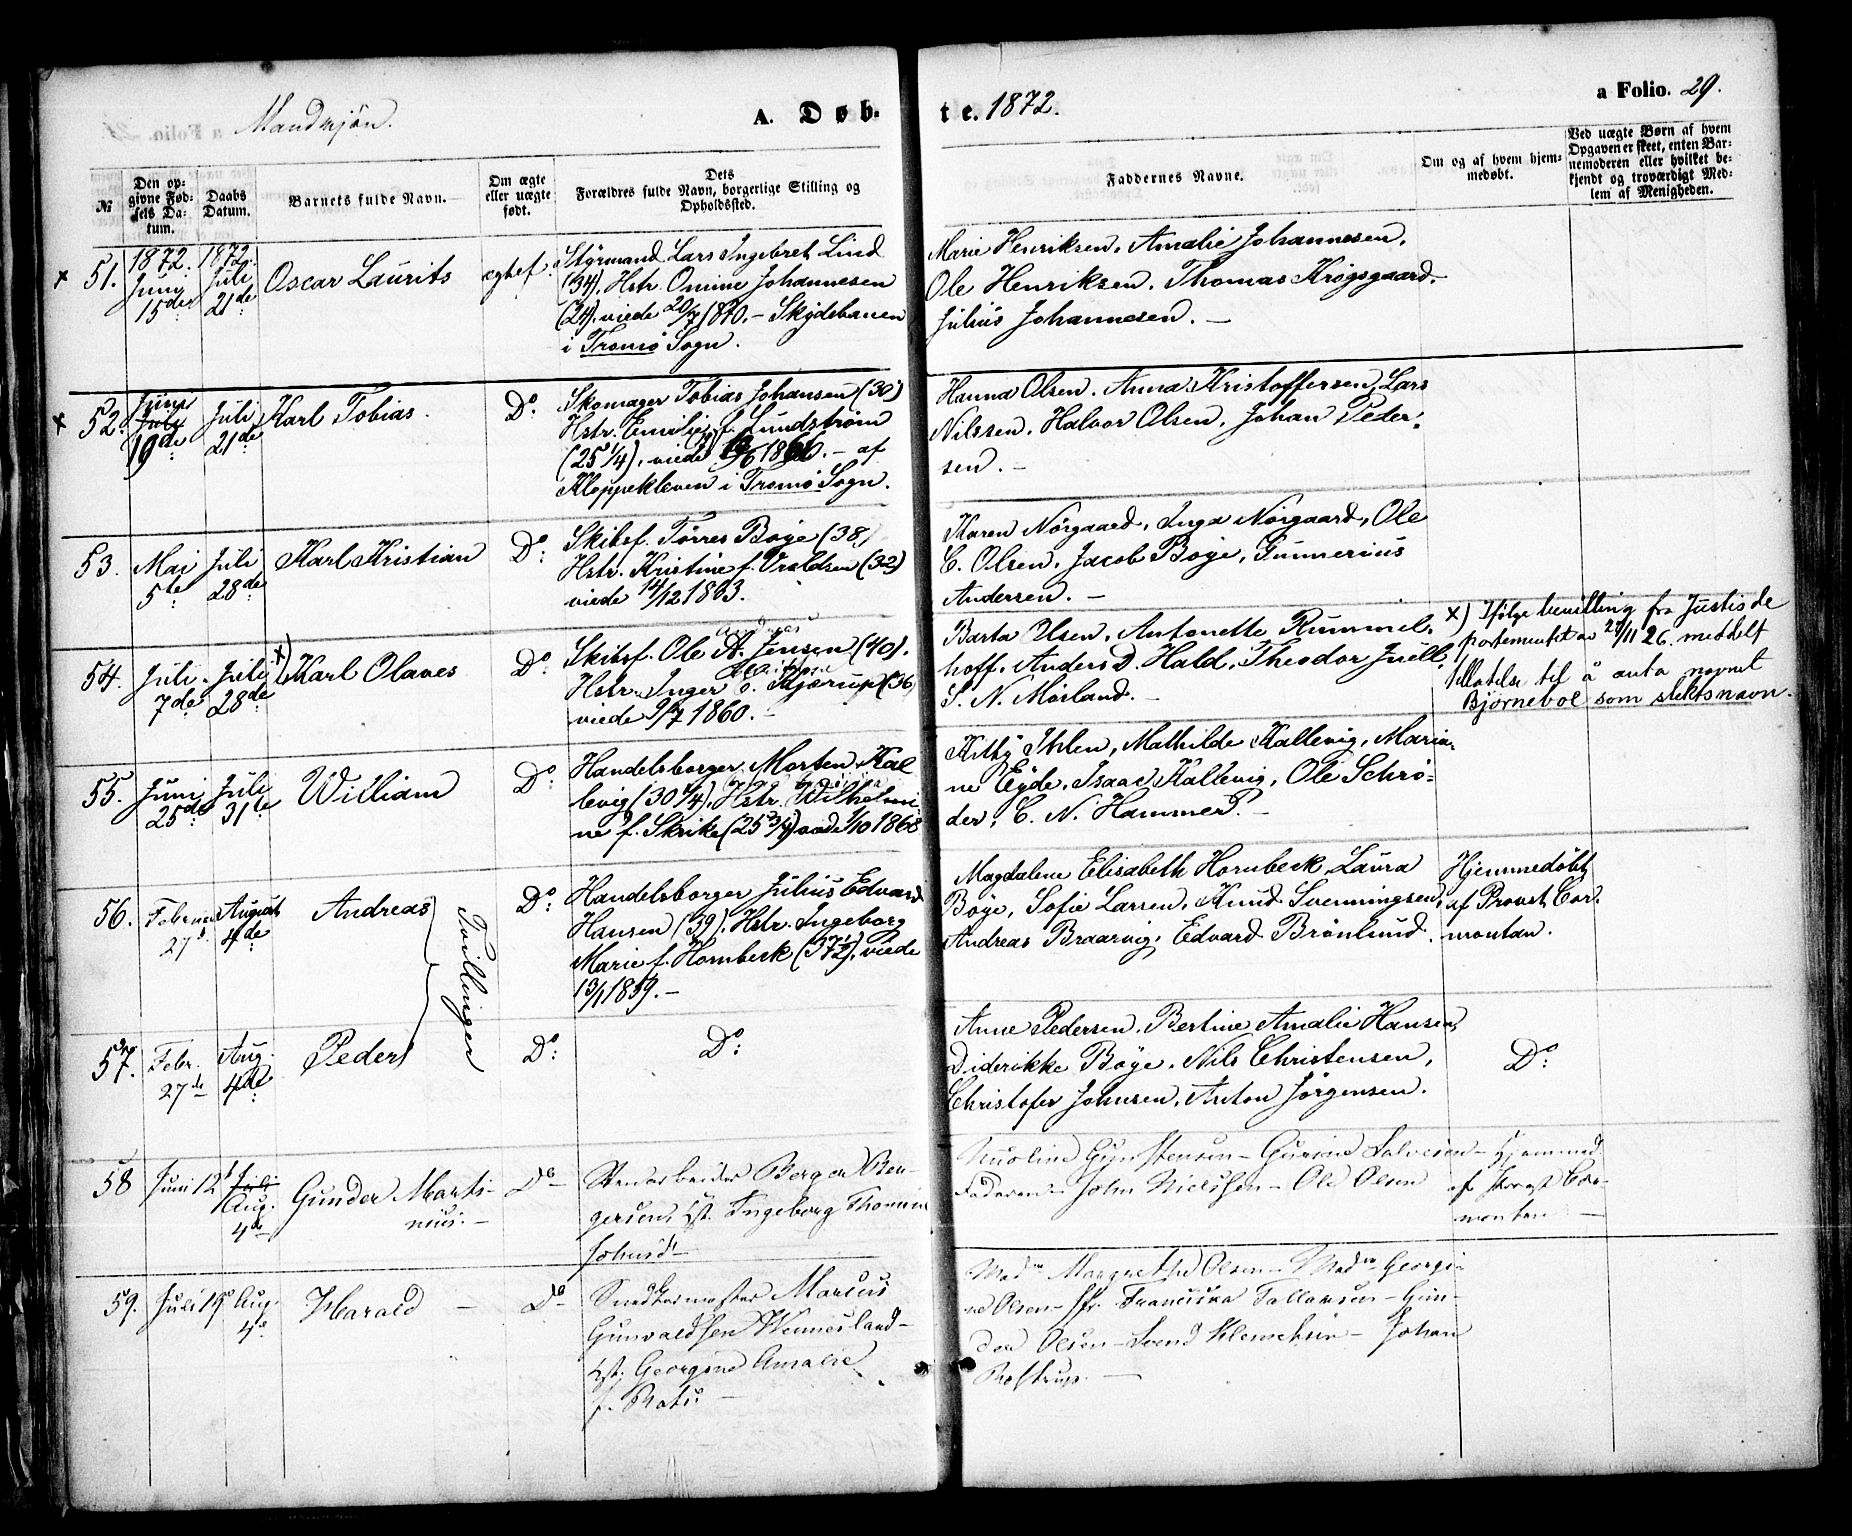 Mandkjön.
A. Døb-
te. 1872.
a Folio. 29.
№
Den op-
givne Fød-
sels Da-
tum.
Daabs
Datum.
Barnets fulde Navn.
Om ægte
eller uægte
født.
Dets
Forældres fulde Navn, borgerlige Stilling og
Opholdssted.
Faddernes Navne.
Om og af hvem hjem-
medøbt.
Ved uægte Børn af hvem
Opgaven er skeet, enten Bar-
nemoderen eller hvilket be-
kjendt og troværdigt Med-
lem af Menigheden.
x 51.
1872.
Juny
15de
1872.
Juli
21de
Oscar Laurits
ægtef.
Styrmand Lars Ingebret Lind
(34). Hstr. Omine Johannesen
(24). viede 20/7 1870. – Skydebanen
i Tromø Sogn.
Marie Henriksen. Amalie Johannesen.
Ole Henriksen. Thomas Krøgsgaard.
Julius Johannesen. –
x 52.
Juny
July
19de
Juli
21de
Karl Tobias.
Do:
Skomager Tobias Johansen (30)
Hstr. Emilie f. Lundstrøm
(25 1/4), viede 1866. – af
Kloppekleven i Tromø Sogn.
Hanna Olsen. Anna Kristoffersen, Lars
Nilssen. Halvor Olsen. Johan Peder-
sen. –
53.
Mai
5te
Juli
28de
Karl Kristian
Do:
Skibsf. Tørres Boye (38)
Hstr. Kristine f. Oraldsen (32)
viede 14/12 1863.
Karen Nørgaard, Inga Nørgaard, Ole
C. Olsen. Jacob Boye, Gunnerius
Andersen. –
54.
Juli
7de
Juli
28de
x) Karl Olaves
Do:
Andreas
Skibsf. Ole A. Jensen (40).
Hstr. Inger f. Kjærup (36)
viede 9/7 1860. –
Barta Olsen, Antonette Rummel-
hoff. Anders D. Hald. Theodor Juell.
S. N. Mørland. –
x) Ifølge bevilling fra Justisde
partementet av 29/11 26. meddelt
tillatelse til å anta navnet
Bjørneboe som slektsnavn.
55.
Juni
25de
Juli
31te
William
Do:
Handelsborger Morten Kal
levig (30 1/4). Hstr. Wilhelmi
ne f. Skrike (25 3/4) viede 1/10 1868
Kitty Ihlen, Mathilde Kallevig, Maria-
ne Eyde, Isaac Kallevig, Ole Schrø-
der, C. N. Hammer. –
56.
Februar
27
August
4de
Andreas
Tvillinger
Do:
Handelsborger Julius Edvard
Hansen (39). Hstr. Ingeborg
Marie f. Hornbeck (37 1/2). viede
13/1 1859. –
Magdalene Elisabeth Hornbeck, Laura
Boye, Sofie Larsen. Knud Svenningsen,
Andreas Braarvig, Edvard Brønlund.
Hjemmedøbt
af Provst Cor-
montan.
57.
Febr.
27de
Aug.
4de
Peder
Do:
Do:
Anne Pedersen. Bertine Amalie Hansen,
Diderikke Boye. Nils Christensen,
Christofer Johnsen, Anton Jørgensen.
Do:
58
Juni 12
Juli
Aug.
4de
Gunder Marti-
nius. –
Do
Stenarbeider Berger Ber-
gersen, Hst. Ingeborg Thomine
Johnsd.
Gunstensen – Gurine Salvesen –
Faderen – John Nielssen – Ole Olsen
Hjemmed.
af Provst Cor-
montan –
59.
Juli 19
Aug.
4de
Harald –
Do
Snedkermester Marius
Gunvaldsen Wennesland –
Hst. Georgine Amalie
f. Rots –
Madm Margrethe Olsen – Madm Georgi-
ne Olsen – Jfr. Franciska Tallaksen – Gun-
der Olsen – Svend Klemetsen – Johan
Rostrup. –